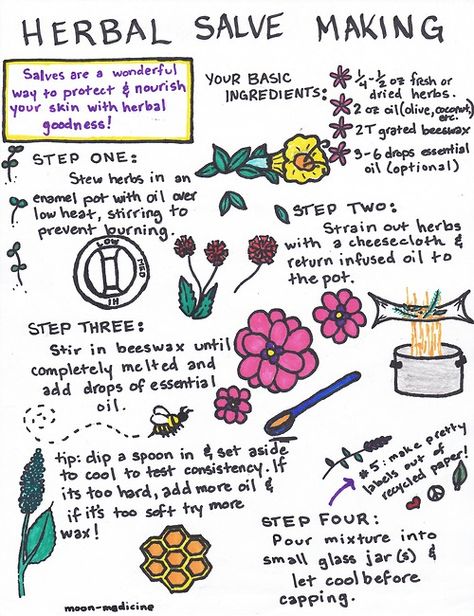 HERBAL SALVE MAKING
Salves are a wonderful
way to protect & nourish
your skin with herbal
goodness!
YOUR BASIC
INGREDIENTS:
1/4-1/2 oz fresh or
dried herbs.
2 oz oil (olive, coconut,
etc.
2T grated beeswax
3-6 drops essential
oil (optional)
STEP ONE:
Stew herbs in an
enamel pot with oil over
low heat, stirring to
prevent burning.
LOW
MED
HI
STEP TWO:
Strain out herbs
with a cheesecloth &
return infused oil to
the pot.
STEP THREE:
Stir in beeswax until
completely melted and
add drops of essential
oil.
tip: dip a spoon in & set aside
to cool to test consistency. If
its too hard, add more oil &
if it's too soft try more
wax!
#5: make pretty
labels out of
recycled paper!
STEP FOUR:
Pour mixture into
small glass jar(s) &
let cool before
capping.
moon-medicine